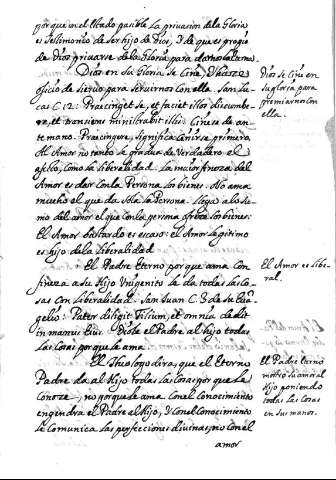 porque en el estado pasible la privacion de la Gloria
es testimonio de ser hijo de Dios, I de que es propio
de Dios privarse de la Gloria para
Dios en su Gloria se ciñe, I hace
oficio de siervo para servirnos con ella. San Lu-
cas C. 12: Praecinget se, et faciet illos discumbe-
re, et transiens ministrabit illis. Ciñese de an-
te mano. Praecingere, significa ceñirse primero
Al Amor no tanto le gradua de Verdadero el
afecto, como la liberalidad. La maior fineza del
Amor es dar con la Persona los bienes. No ama
mucho el que da sola la Persona. llega a lo su-
mo del amor el que con la persona ofrece los bienes.
El Amor bastardo es escaso: el Amor legitimo
es hijo de la liberalidad.
El Padre Eterno porque ama con
fineza a su Hijo Unigenito le da todas las co-
sas con liberalidad. San Juan C. 3 de su Evan-
gelio: Pater diligit Filium, et omnia dedit
in manu Eius. Diole el Padre al Hijo todas
las cosas porque le ama.
El Theologo dira, que el Eterno
Padre da al Hijo todas las cosas por que le
Conoze, no porque le ama. Con el Conocimiento
engendra el Padre al Hijo, I con el Conocimiento
le comunica las perfecciones divinas, no con el
amor
Dios se ciñe en
su gloria para
premiarnos con
ella.
El Amor es libe-
ral.
El Padre Eterno
mostro su amor al
Hijo poniendo
todas las cosas
en sus manos.